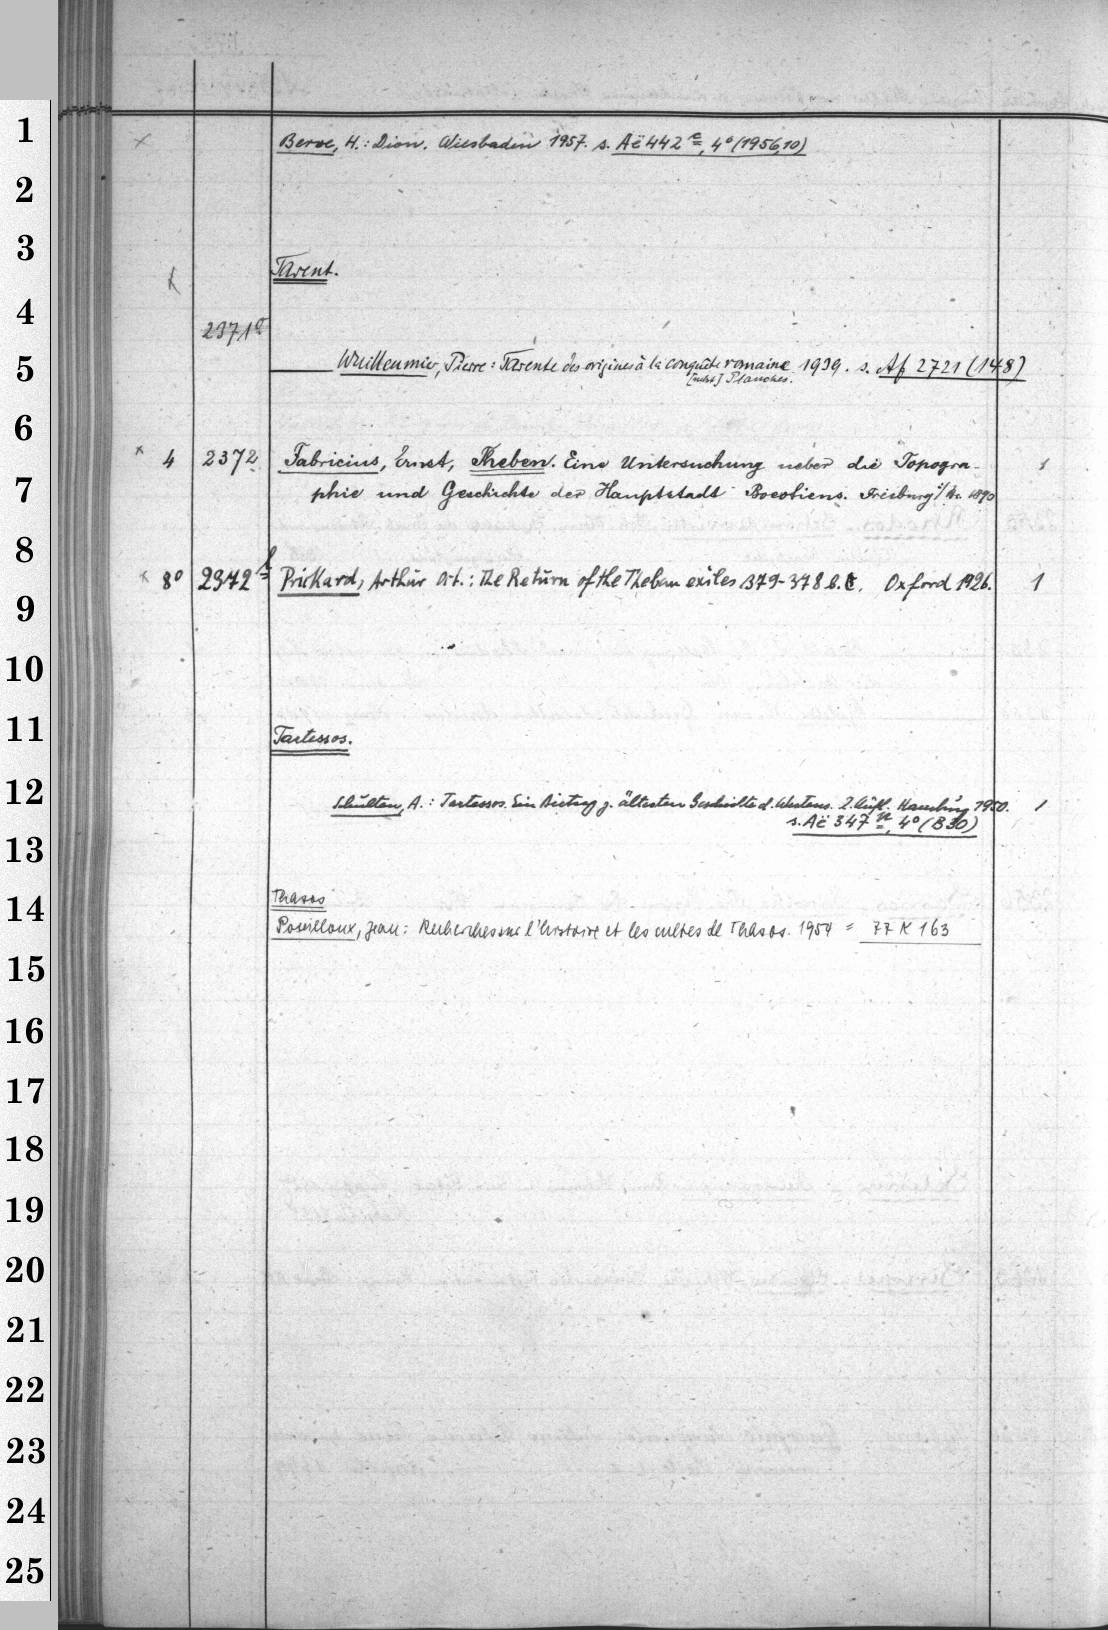 1 × Berve, H.: Dion. Wiesbaden 1957. s. Aë 442 c, 4° (1956,10)
2
3 Tarent.
4 2371a
5 Wuilleumier, Pierre: Tarente des origines à la conquête romaine 1939. s. Af 2721 (148)
[nebst] Planches.
6
× 4 2372 Fabricius, Ernst, Theben. Eine Untersuchung ueber die Topogra- 1
7 phie und Geschichte der Hauptstadt Boeotiens. Freiburg i/Br. 1890
8
× 8° 2372f Prickard, Arthur Ort.: The Return of the Theban exiles 379-378 B.C. Oxford 1926. 1
9
10
11 Tartessos.
12 Schulten, A.: Tartessos. Ein Beitrag z. ältesten Geschichte d. Westens. 2. Aufl. Hamburg 1950. 1
s. Aë 347 n, 4° (B 30)
13
14 Thasos
Pouilloux, Jean: Recherches sur l'histoire et les cultes de Thasos. 1954 = 77 K 163
15
16
17
18
19
20
21
22
23
24
25